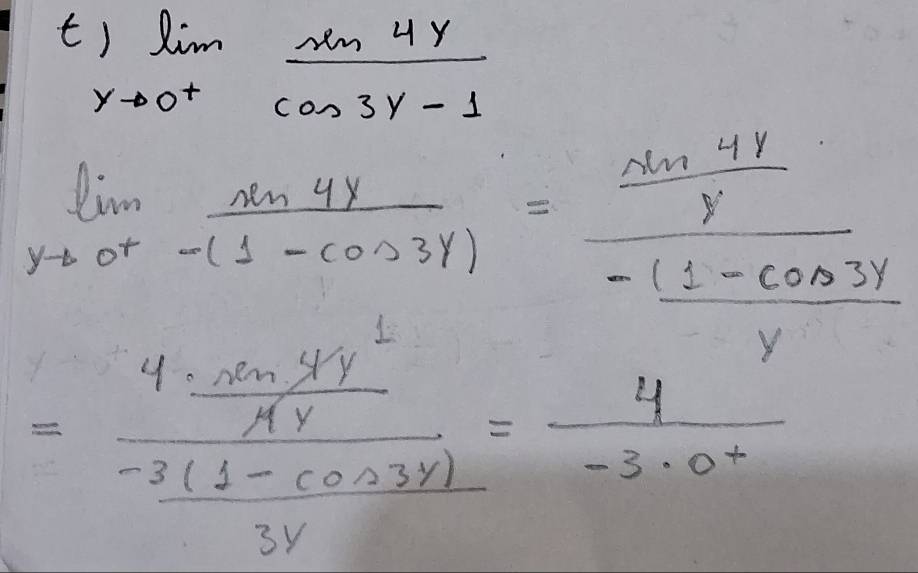 t) lim sen 4y / cos 3y - 1
y→0+
lim sen 4y / -(1 - cos 3y) = sen 4y / y / -(1 - cos 3y / y
y→0+
= 4 · sen 4y / 4y 1 / -3(1 - cos 3y) / 3y = 4 / -3 · 0+